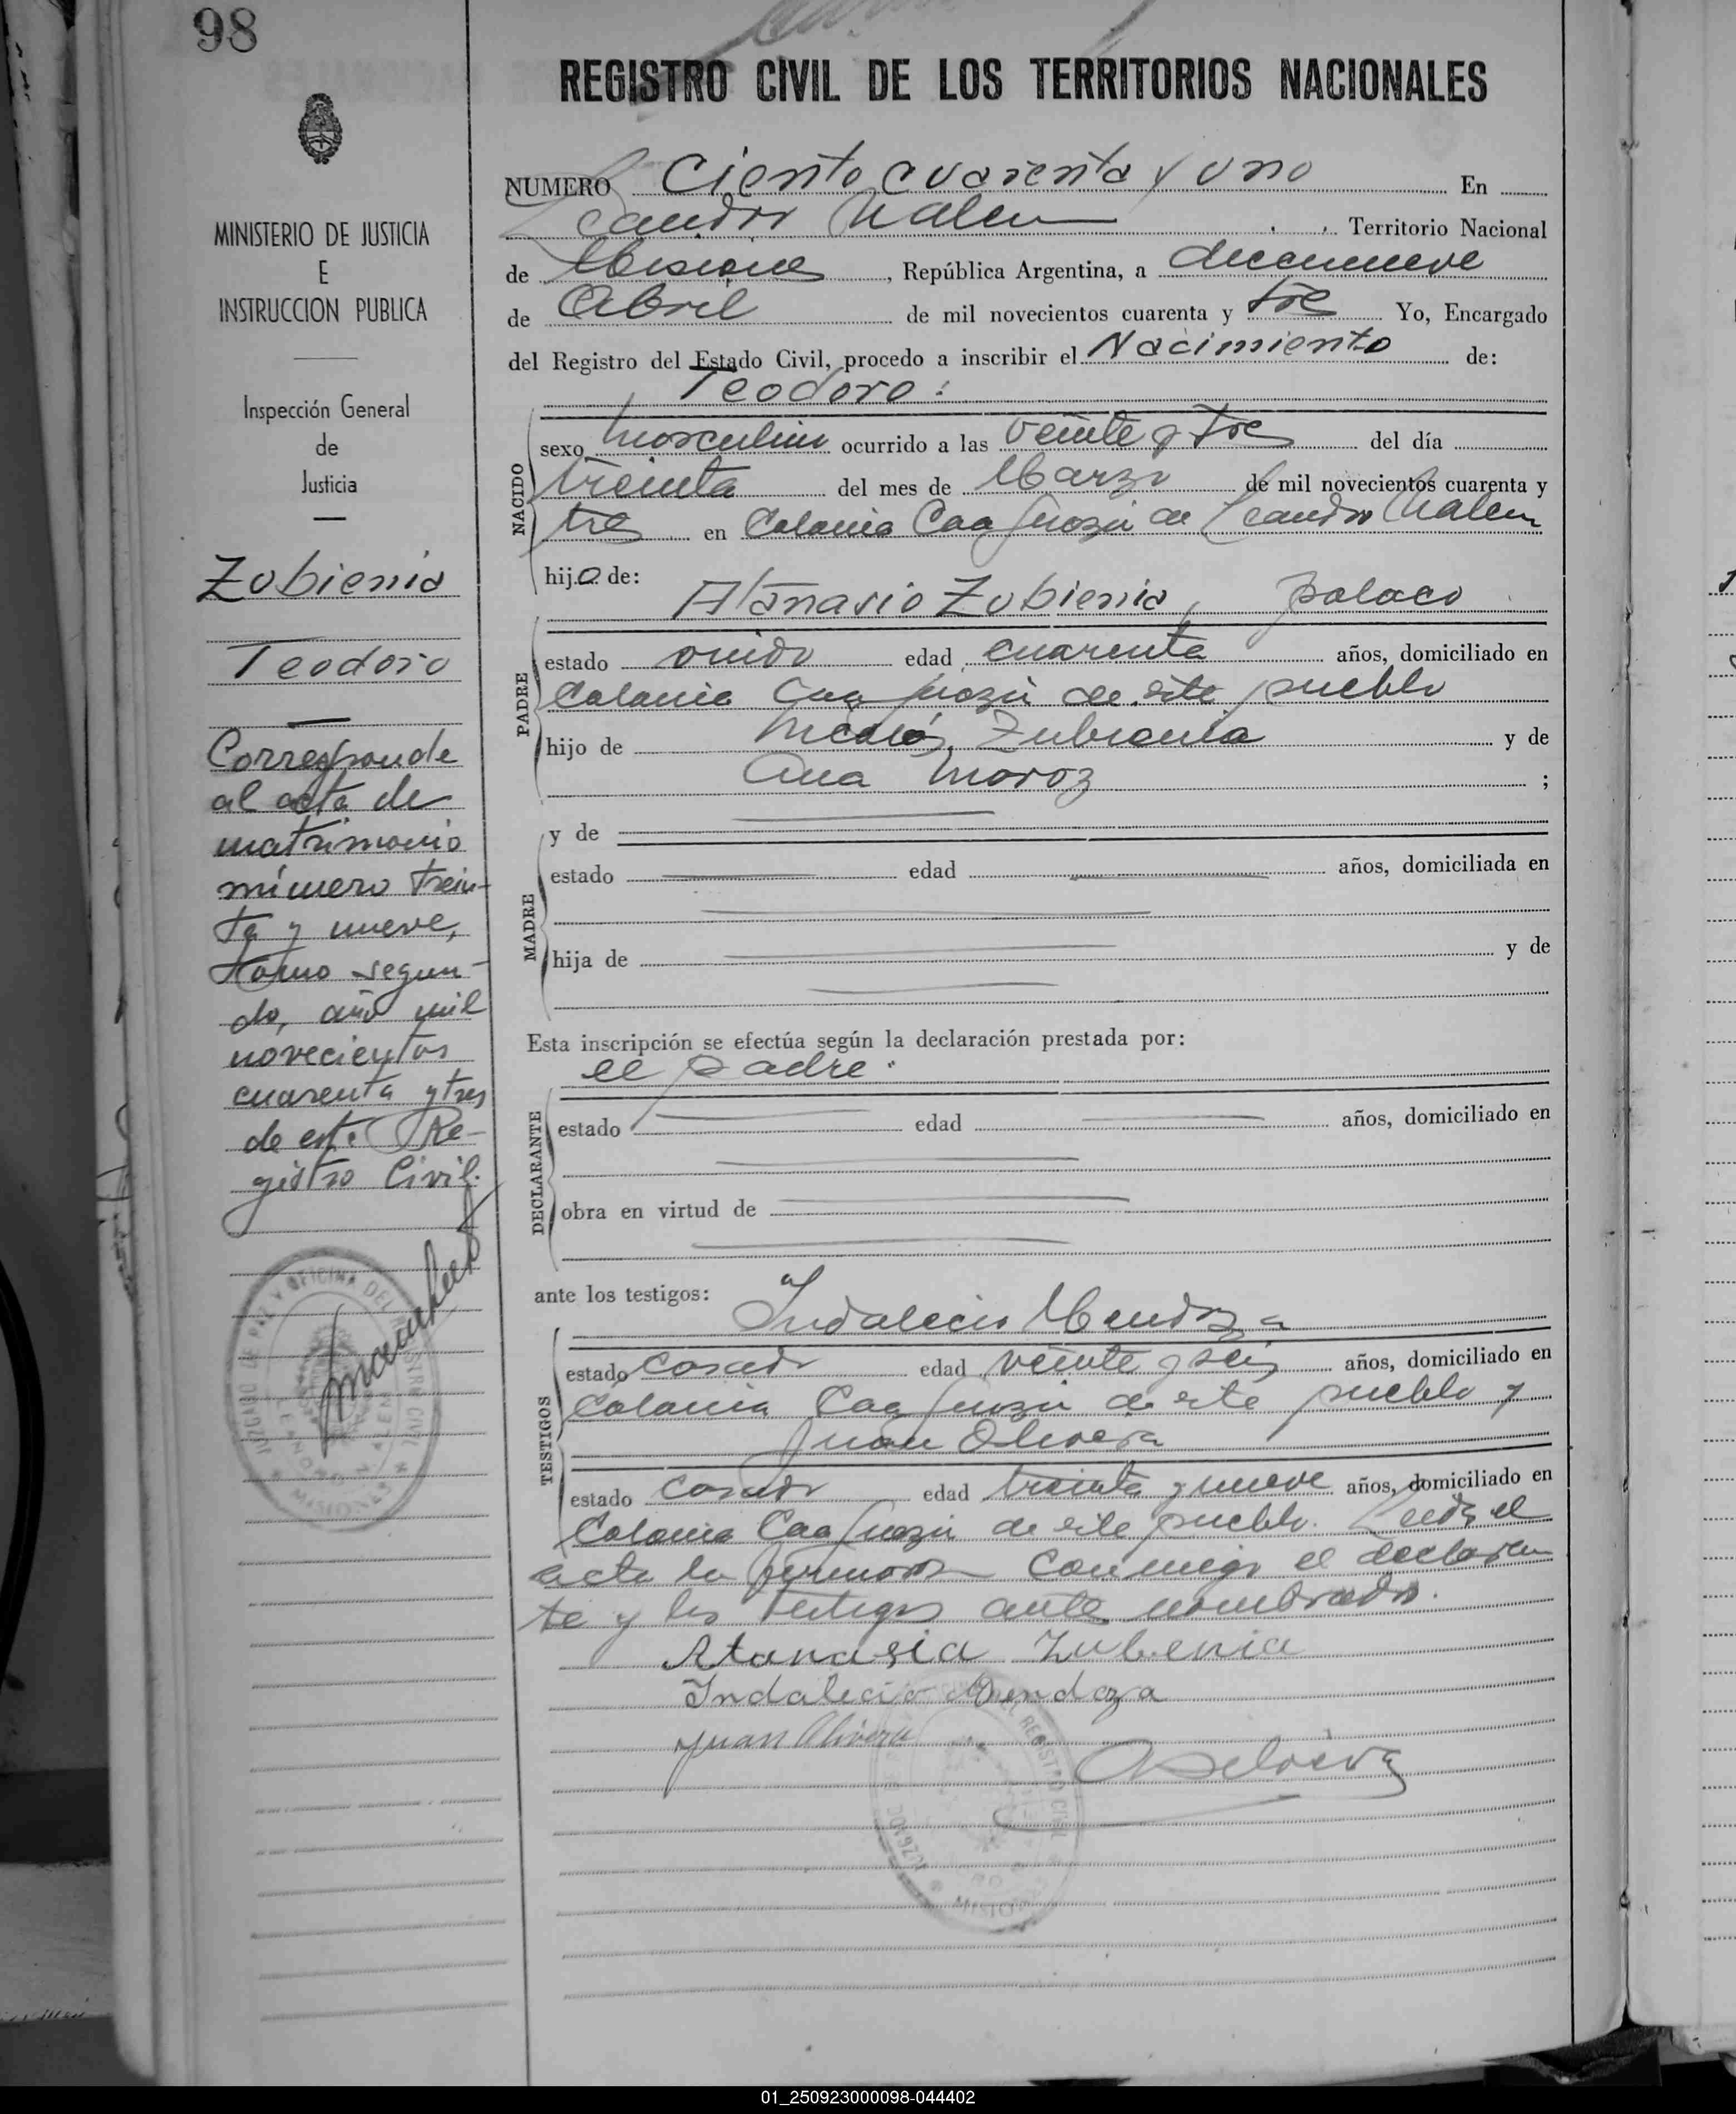 98
REGISTRO CIVIL DE LOS TERRITORIOS NACIONALES
MINISTERIO DE JUSTICIA
E
INSTRUCCION PUBLICA
Inspección General
de
Justicia
Zubienia
Teodoro
Corresponde
al acta de
matrimonio
número trein-
ta y nueve,
tomo segun-
do, año mil
novecientos
cuarenta y tres
de este Re-
gistro Civil.
NUMERO Ciento cuarenta y uno En
Leandro N Alem Territorio Nacional
de Misiones, República Argentina, a diecinueve
de Abril de mil novecientos cuarenta y tres Yo, Encargado
del Registro del Estado Civil, procedo a inscribir el Nacimiento de:
Teodoro:
NACIDO
sexo masculino ocurrido a las veinte y tres del día
treinta del mes de Marzo de mil novecientos cuarenta y
tres en Colonia Caa Guazú de Leandro N Alem
hijo de:
Atanasio Zubienia, polaco
PADRE
estado edad cuarenta años, domiciliado en
Colonia Caa Guazú de este pueblo
hijo de Nicolás Zubienia y de
Ana Moroz ;
MADRE
y de
estado edad años, domiciliada en
hija de y de
Esta inscripción se efectúa según la declaración prestada por:
el padre.
DECLARANTE
estado edad años, domiciliado en
obra en virtud de
ante los testigos:
Indalecio Mendoza
TESTIGOS
estado casado edad veinte y seis años, domiciliado en
Colonia Caa Guazú de este pueblo y
Juan Olivera
estado casado edad treinta y nueve años, domiciliado en
Colonia Caa Guazú de este pueblo. Leida el
acta la firmaron conmigo el declaran
te y los testigos ante nombrados.
Atanasia Zubenia
Indalecio Mendoza
Juan Olivera
01_250923000098-044402